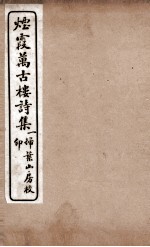 煙霞萬古樓詩集一
掃葉山房校印